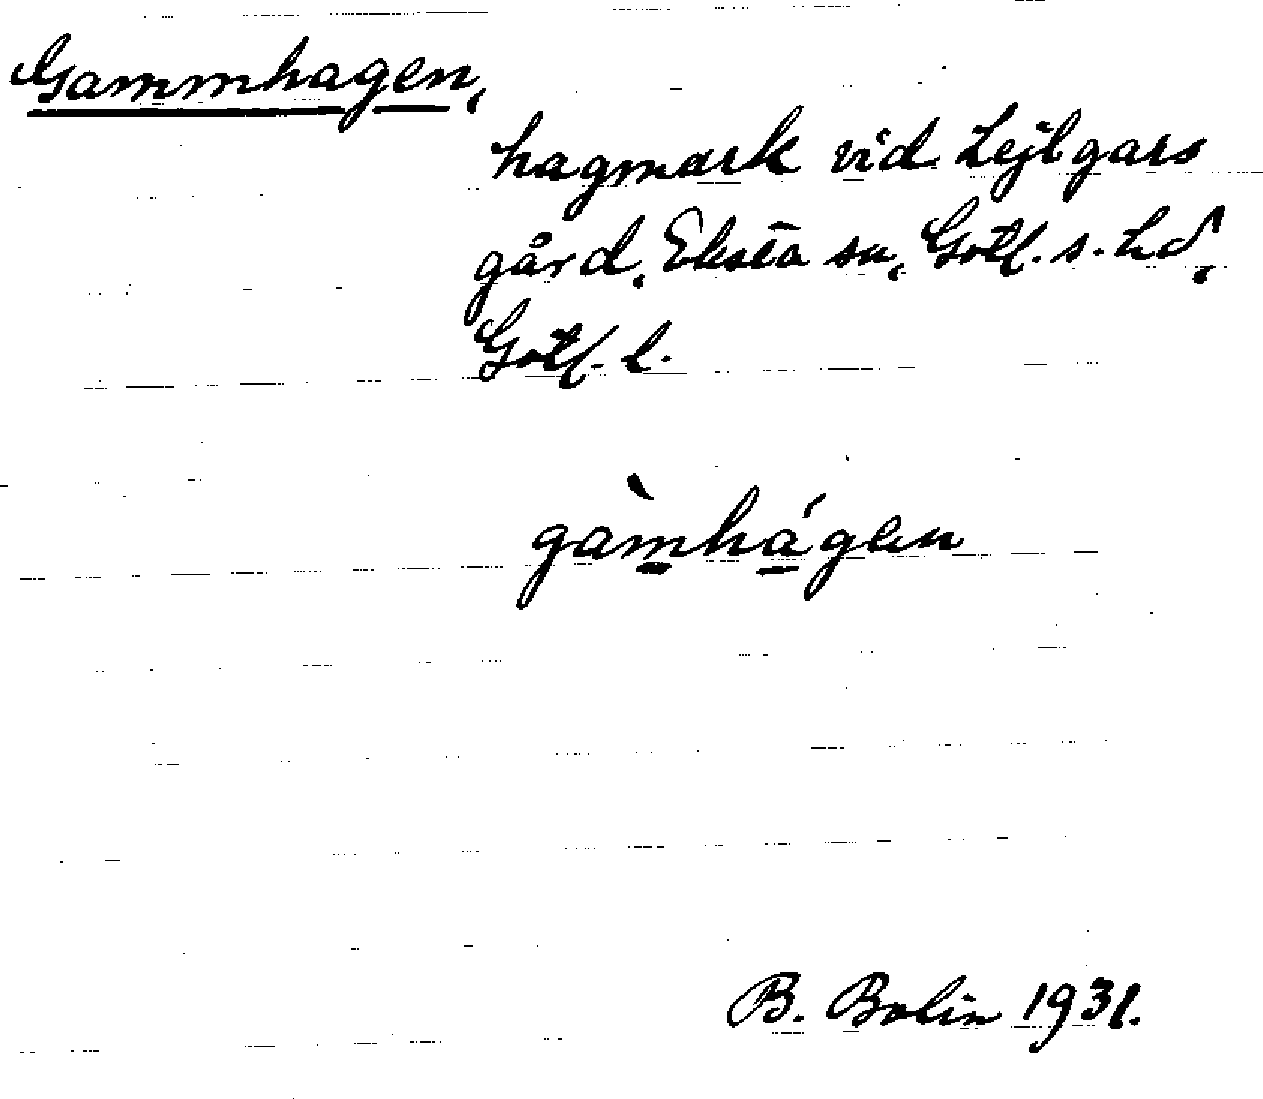 Gammhagen,
hagmark vid Lejlgars
gård, Eksta sn, Gotl. s. hd,
Gotl. l.
gàmhágen
B. Bolin 1931.